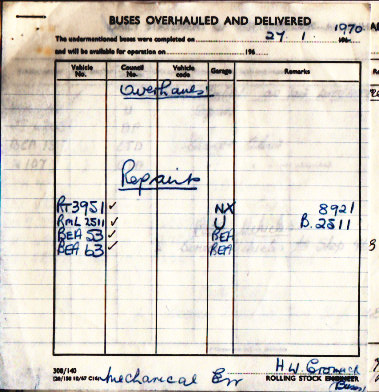 BUSES OVERHAULED AND DELIVERED
The undermentioned buses were completed on 27 1 1970 196
and will be available for operation on 196
Vehicle No. Council No. Vehicle code Garage Remarks
Overhauls
Repaints
RT3951 ✓ NX 8921
RML2511 ✓ U B.2511
BEA 53 ✓ BEA
BEA 63 ✓ BEA
308/140
Mechanical Er H.W.
ROLLING STOCK ENGINEER
(Buses)